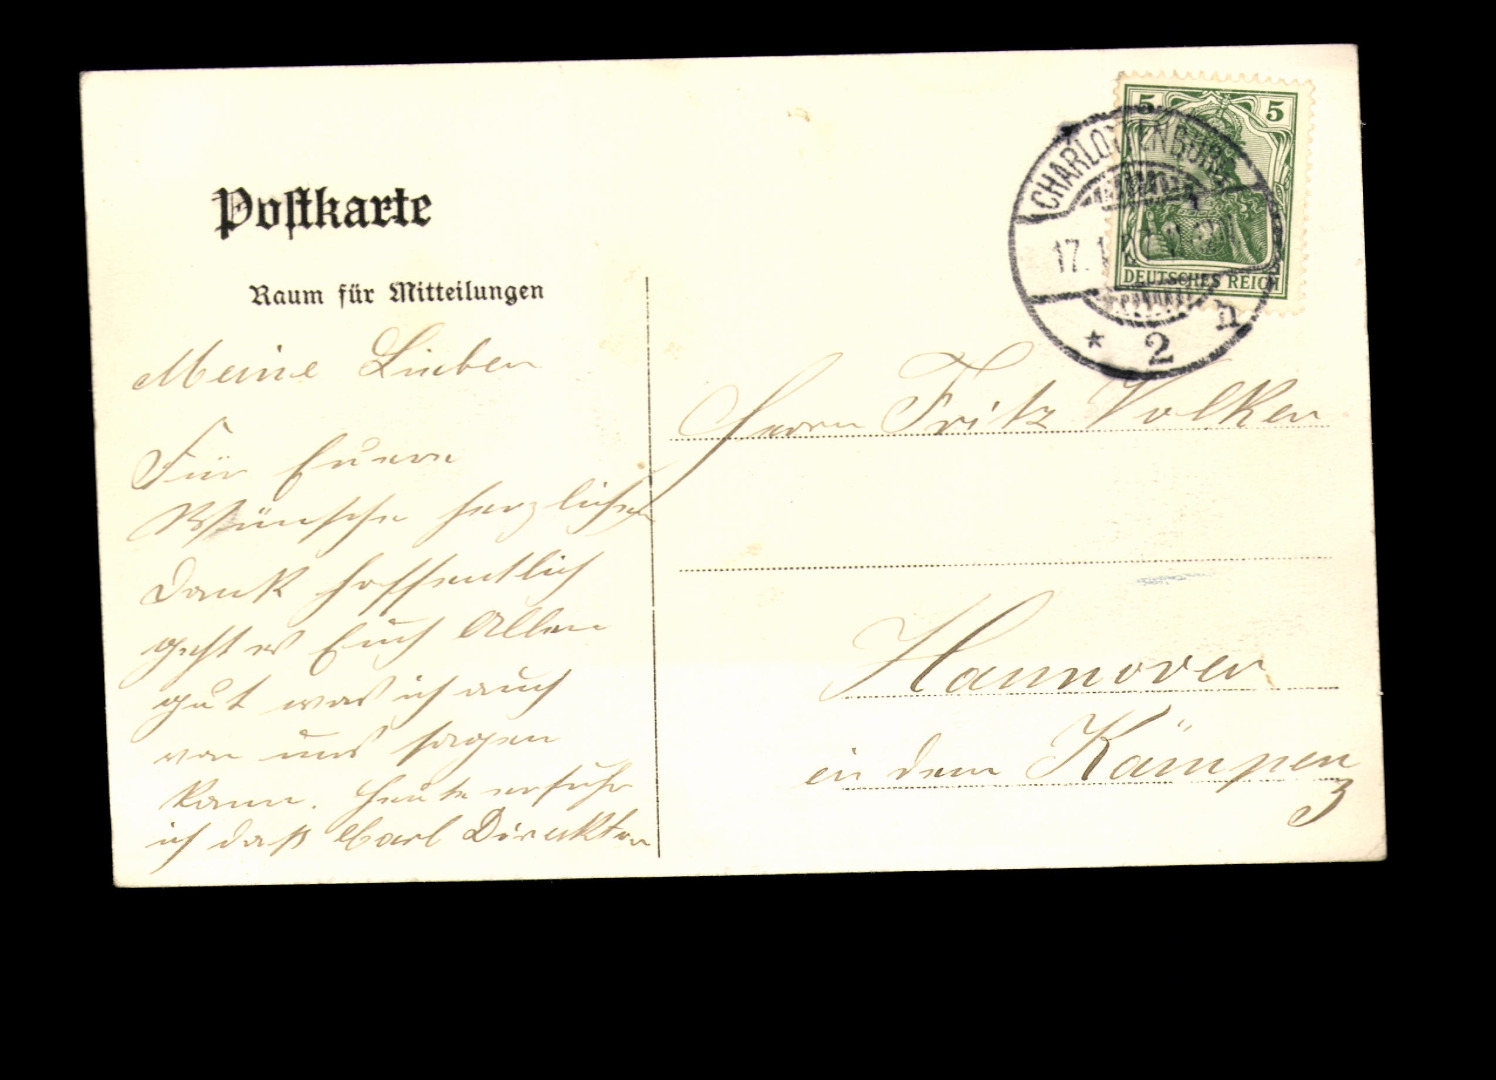 Postkarte
Raum für Mitteilungen
Meine Lieben
Für Euere
Wünsche herzlichen
Dank hoffentlich
geht es Euch Allen
gut was ich auch
von uns sagen
kann. Heute erfuhr
ich daß Carl Direktor
5 5
DEUTSCHES REICH
CHARLOTTENBURG
17. 1
* 2 h
Herrn Fritz Volker
Hannover
in den Kämpen
3